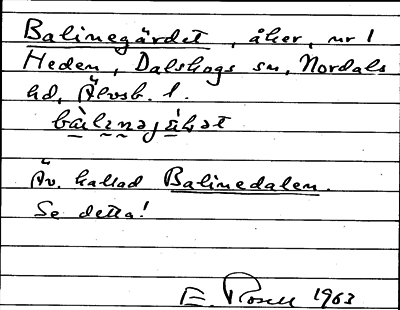 Balinegärdet, åker, nr 1
Heden, Dalskogs sn, Nordals
hd, Älvsb. l.
Äv. kallad Balinedalen.
Se detta!
E. Rosell 1963